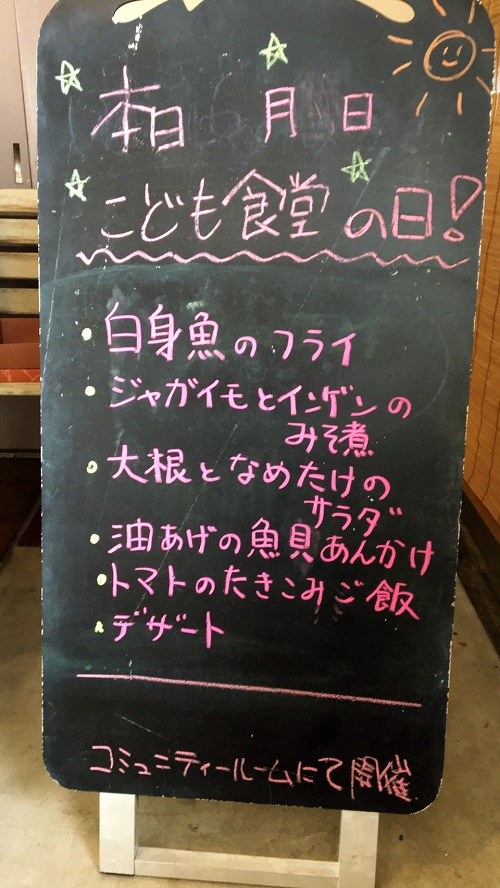 本日 月 日
こども食堂の日!
・白身魚のフライ
・ジャガイモとインゲンの
みそ煮
・大根となめたけの
サラダ
・油あげの魚貝あんかけ
・トマトのたきこみご飯
・デザート
コミュニティールームにて開催